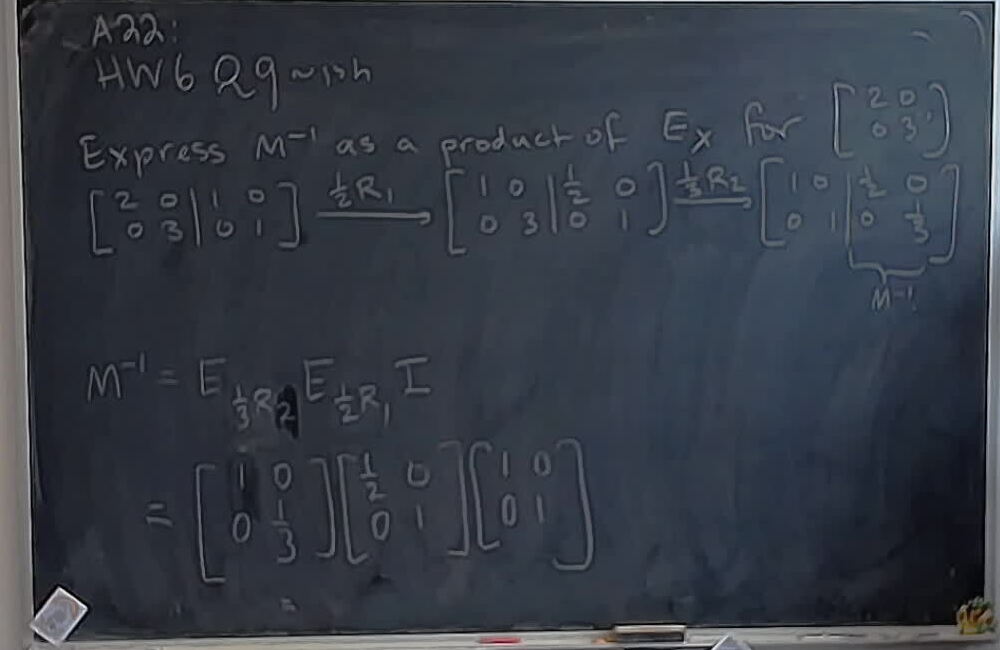 A22:
HW6 Q9 ~ish
Express M⁻¹ as a product of Eₓ for [2 0; 0 3]
[2 0 | 1 0; 0 3 | 0 1] —½R₁→ [1 0 | ½ 0; 0 3 | 0 1] —⅓R₂→ [1 0 | ½ 0; 0 1 | 0 ⅓]
M⁻¹
M⁻¹ = E_{⅓R₂} E_{½R₁} I
= [1 0; 0 ⅓] [½ 0; 0 1] [1 0; 0 1]
=